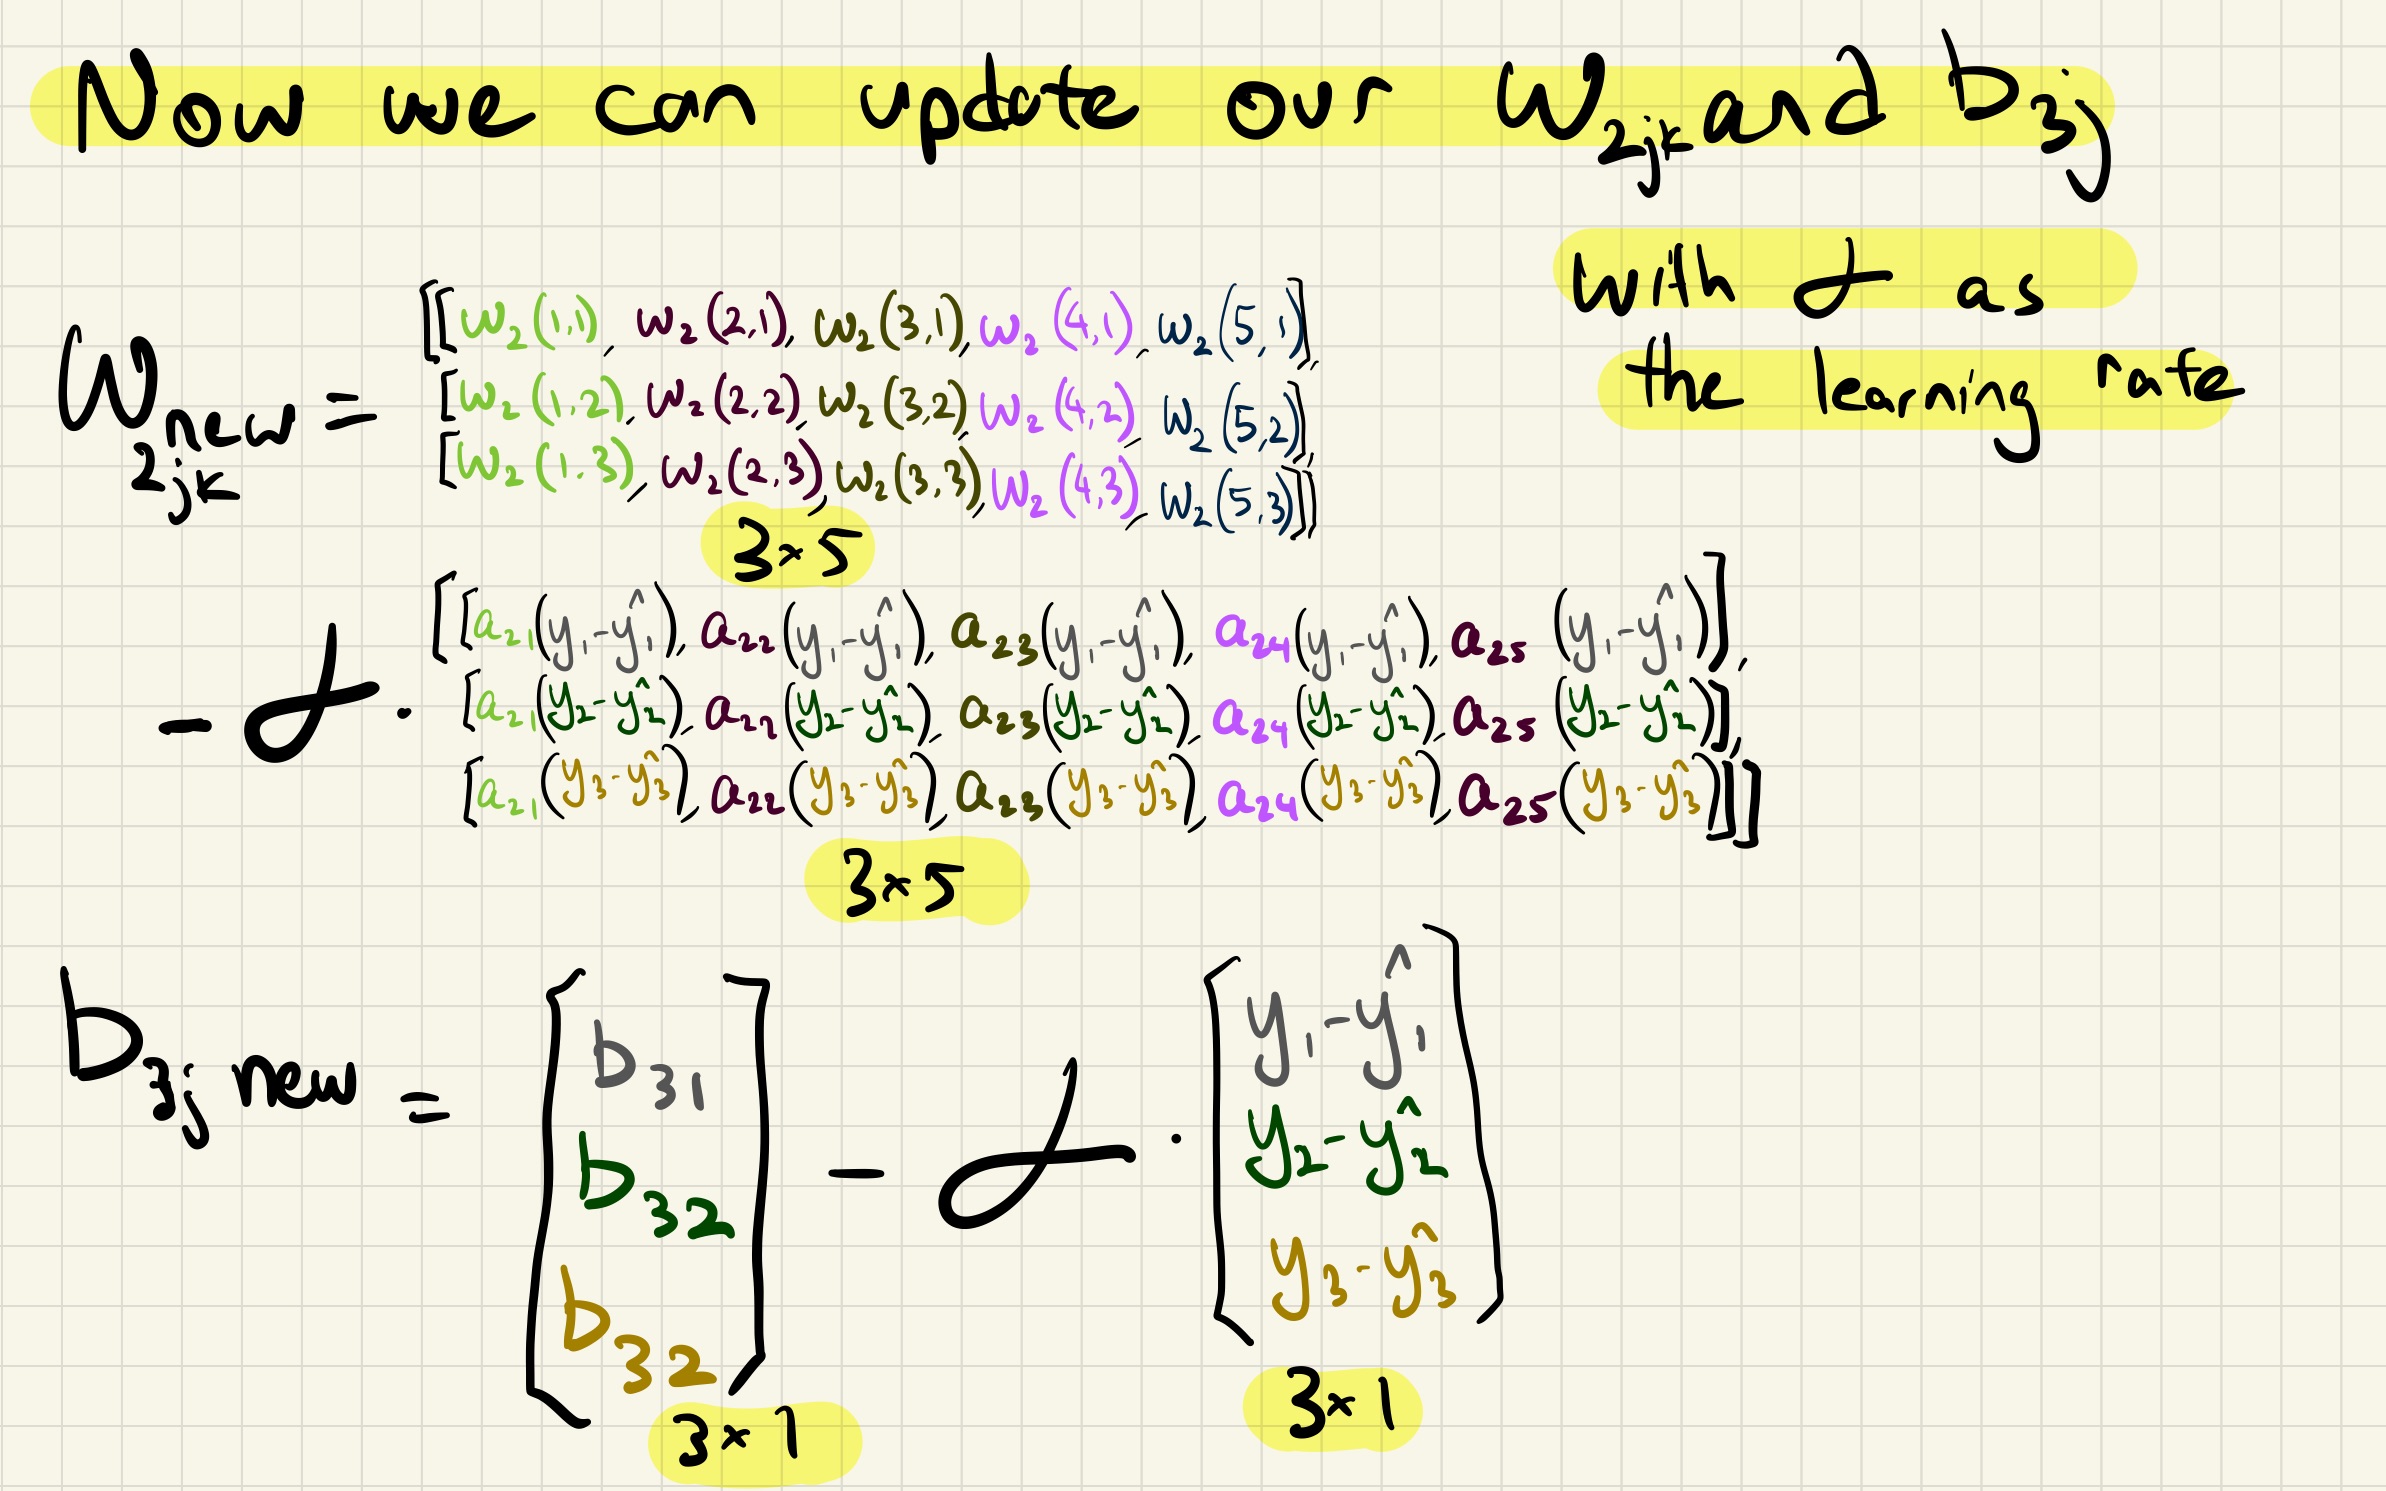 Now we can update our W₂ⱼₖ and b₃ⱼ
with α as
the learning rate
W new 2jk =
[[w₂(1,1), w₂(2,1), w₂(3,1), w₂(4,1), w₂(5,1)],
[w₂(1,2), w₂(2,2), w₂(3,2), w₂(4,2), w₂(5,2)],
[w₂(1,3), w₂(2,3), w₂(3,3), w₂(4,3), w₂(5,3)]]
3×5
- α ·
[[a₂₁(y₁-ŷ₁), a₂₂(y₁-ŷ₁), a₂₃(y₁-ŷ₁), a₂₄(y₁-ŷ₁), a₂₅(y₁-ŷ₁)],
[a₂₁(y₂-ŷ₂), a₂₂(y₂-ŷ₂), a₂₃(y₂-ŷ₂), a₂₄(y₂-ŷ₂), a₂₅(y₂-ŷ₂)],
[a₂₁(y₃-ŷ₃), a₂₂(y₃-ŷ₃), a₂₃(y₃-ŷ₃), a₂₄(y₃-ŷ₃), a₂₅(y₃-ŷ₃)]]
3×5
b₃ⱼ new =
b₃₁
b₃₂
b₃₂
3×1
- α ·
y₁-ŷ₁
y₂-ŷ₂
y₃-ŷ₃
3×1